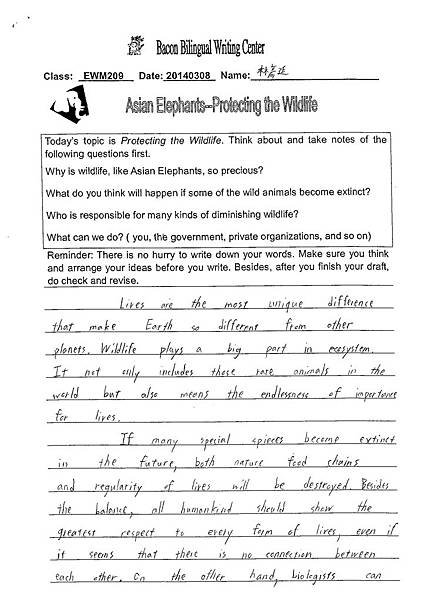 Bacon Bilingual Writing Center
Class: EWM209 Date: 20140308 Name: 林
Asian Elephants--Protecting the Wildlife
Today's topic is Protecting the Wildlife. Think about and take notes of the
following questions first.
Why is wildlife, like Asian Elephants, so precious?
What do you think will happen if some of the wild animals become extinct?
Who is responsible for many kinds of diminishing wildlife?
What can we do? ( you, the government, private organizations, and so on)
Reminder: There is no hurry to write down your words. Make sure you think
and arrange your ideas before you write. Besides, after you finish your draft,
do check and revise.
Lives are the most unique difference
that make Earth so different from other
planets. Wildlife plays a big part in ecosystem.
It not only includes those rare animals in the
world but also means the endlessness of importance
for lives.
If many special spieces become extinct
in the future, both nature food chains
and regularity of lives will be destroyed. Besides
the balance, all humankind should show the
greatest respect to every form of lives, even if
it seems that there is no connection between
each other. On the other hand, biologists can